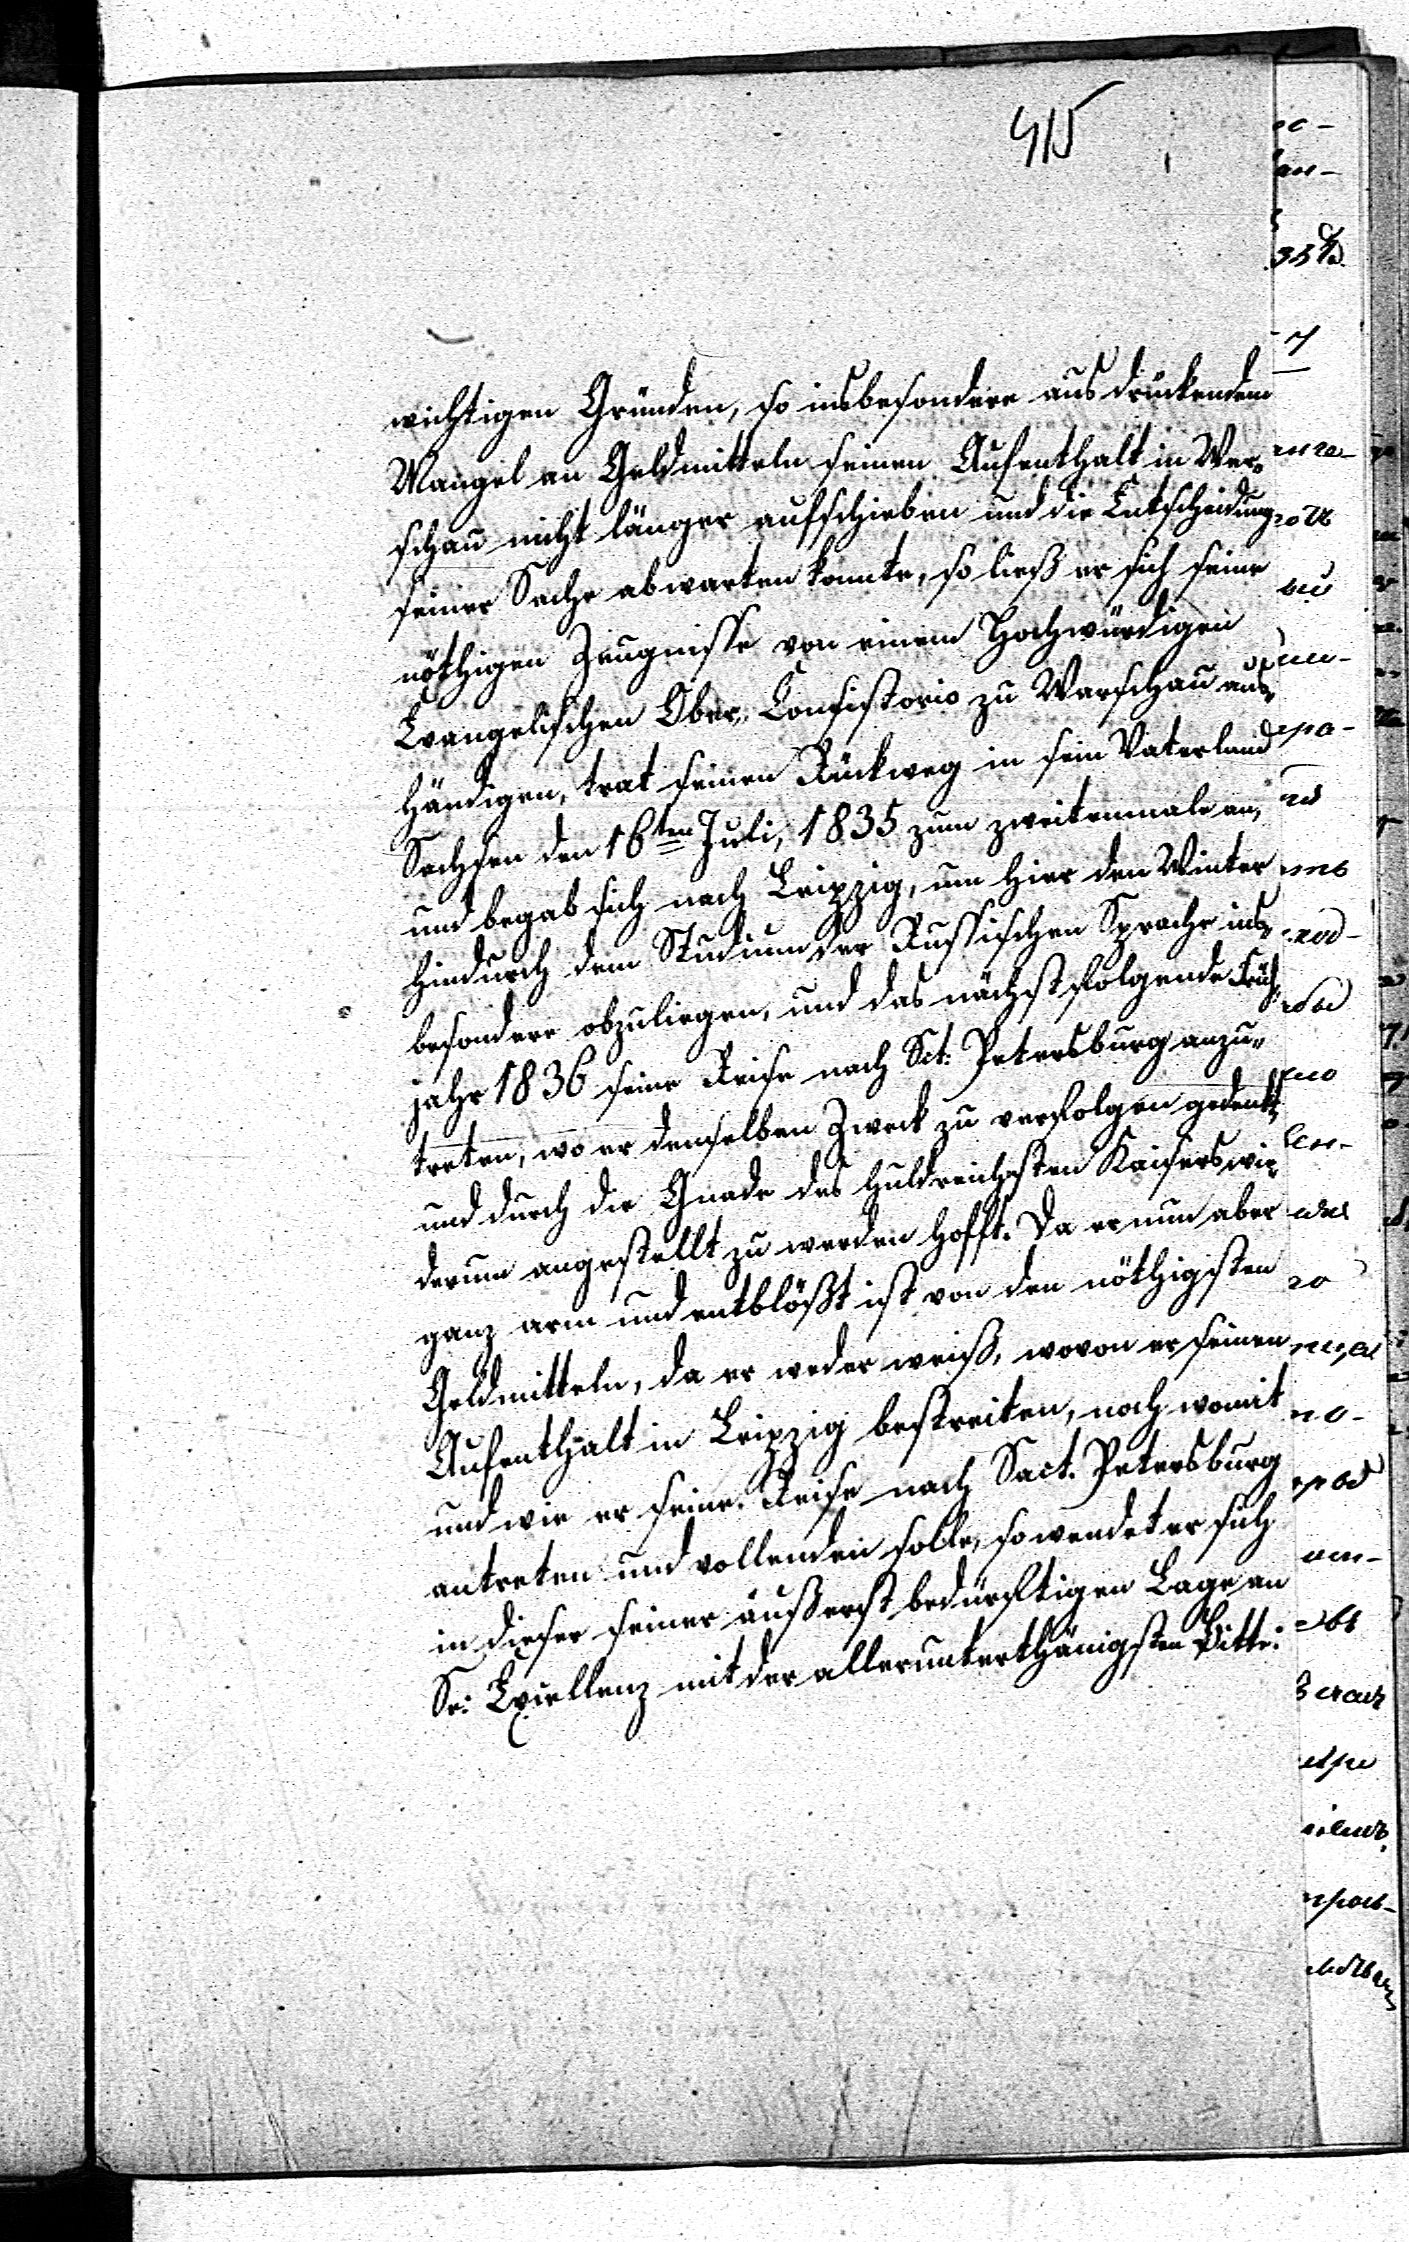 415
wichtigen Gründen, so insbesondere aus drückendem
Mangel an Geldmitteln seinen Aufenthalt in War-
schau nicht länger aufschieben und die Entscheidung
seiner Sache abwarten konnte, so ließ er sich seine
nöthigen Zeugnisse von einem Hochwürdigen
Evangelischen Ober-Consistorio zu Warschau aus-
händigen, trat seinen Rückweg in sein Vaterland
Sachsen den 16ten Juli, 1835 zum zweitenmale an,
und begab sich nach Leipzig, um hier den Winter
hindurch dem Studium der Russischen Sprache ins-
besondere obzuliegen, und das nächstfolgende Früh-
jahr 1836 seine Reise nach Sct: Petersburg anzu-
treten, wo er denselben Zweck zu verfolgen gedenkt,
und durch die Gnade des huldreichsten Kaisers wie-
derum angestellt zu werden hofft. Da er nun aber
ganz arm und entblößt ist von den nöthigsten
Geldmitteln, da er weder weiß, wovon er seinen
Aufenthalt in Leipzig bestreiten, noch womit
und wie er seine Reise nach Sact. Petersburg
antreten und vollenden solle, so wendet er sich
in dieser seiner äußerst bedürftigen Lage an
Se: Excellenz mit der allerunterthänigsten Bitte: